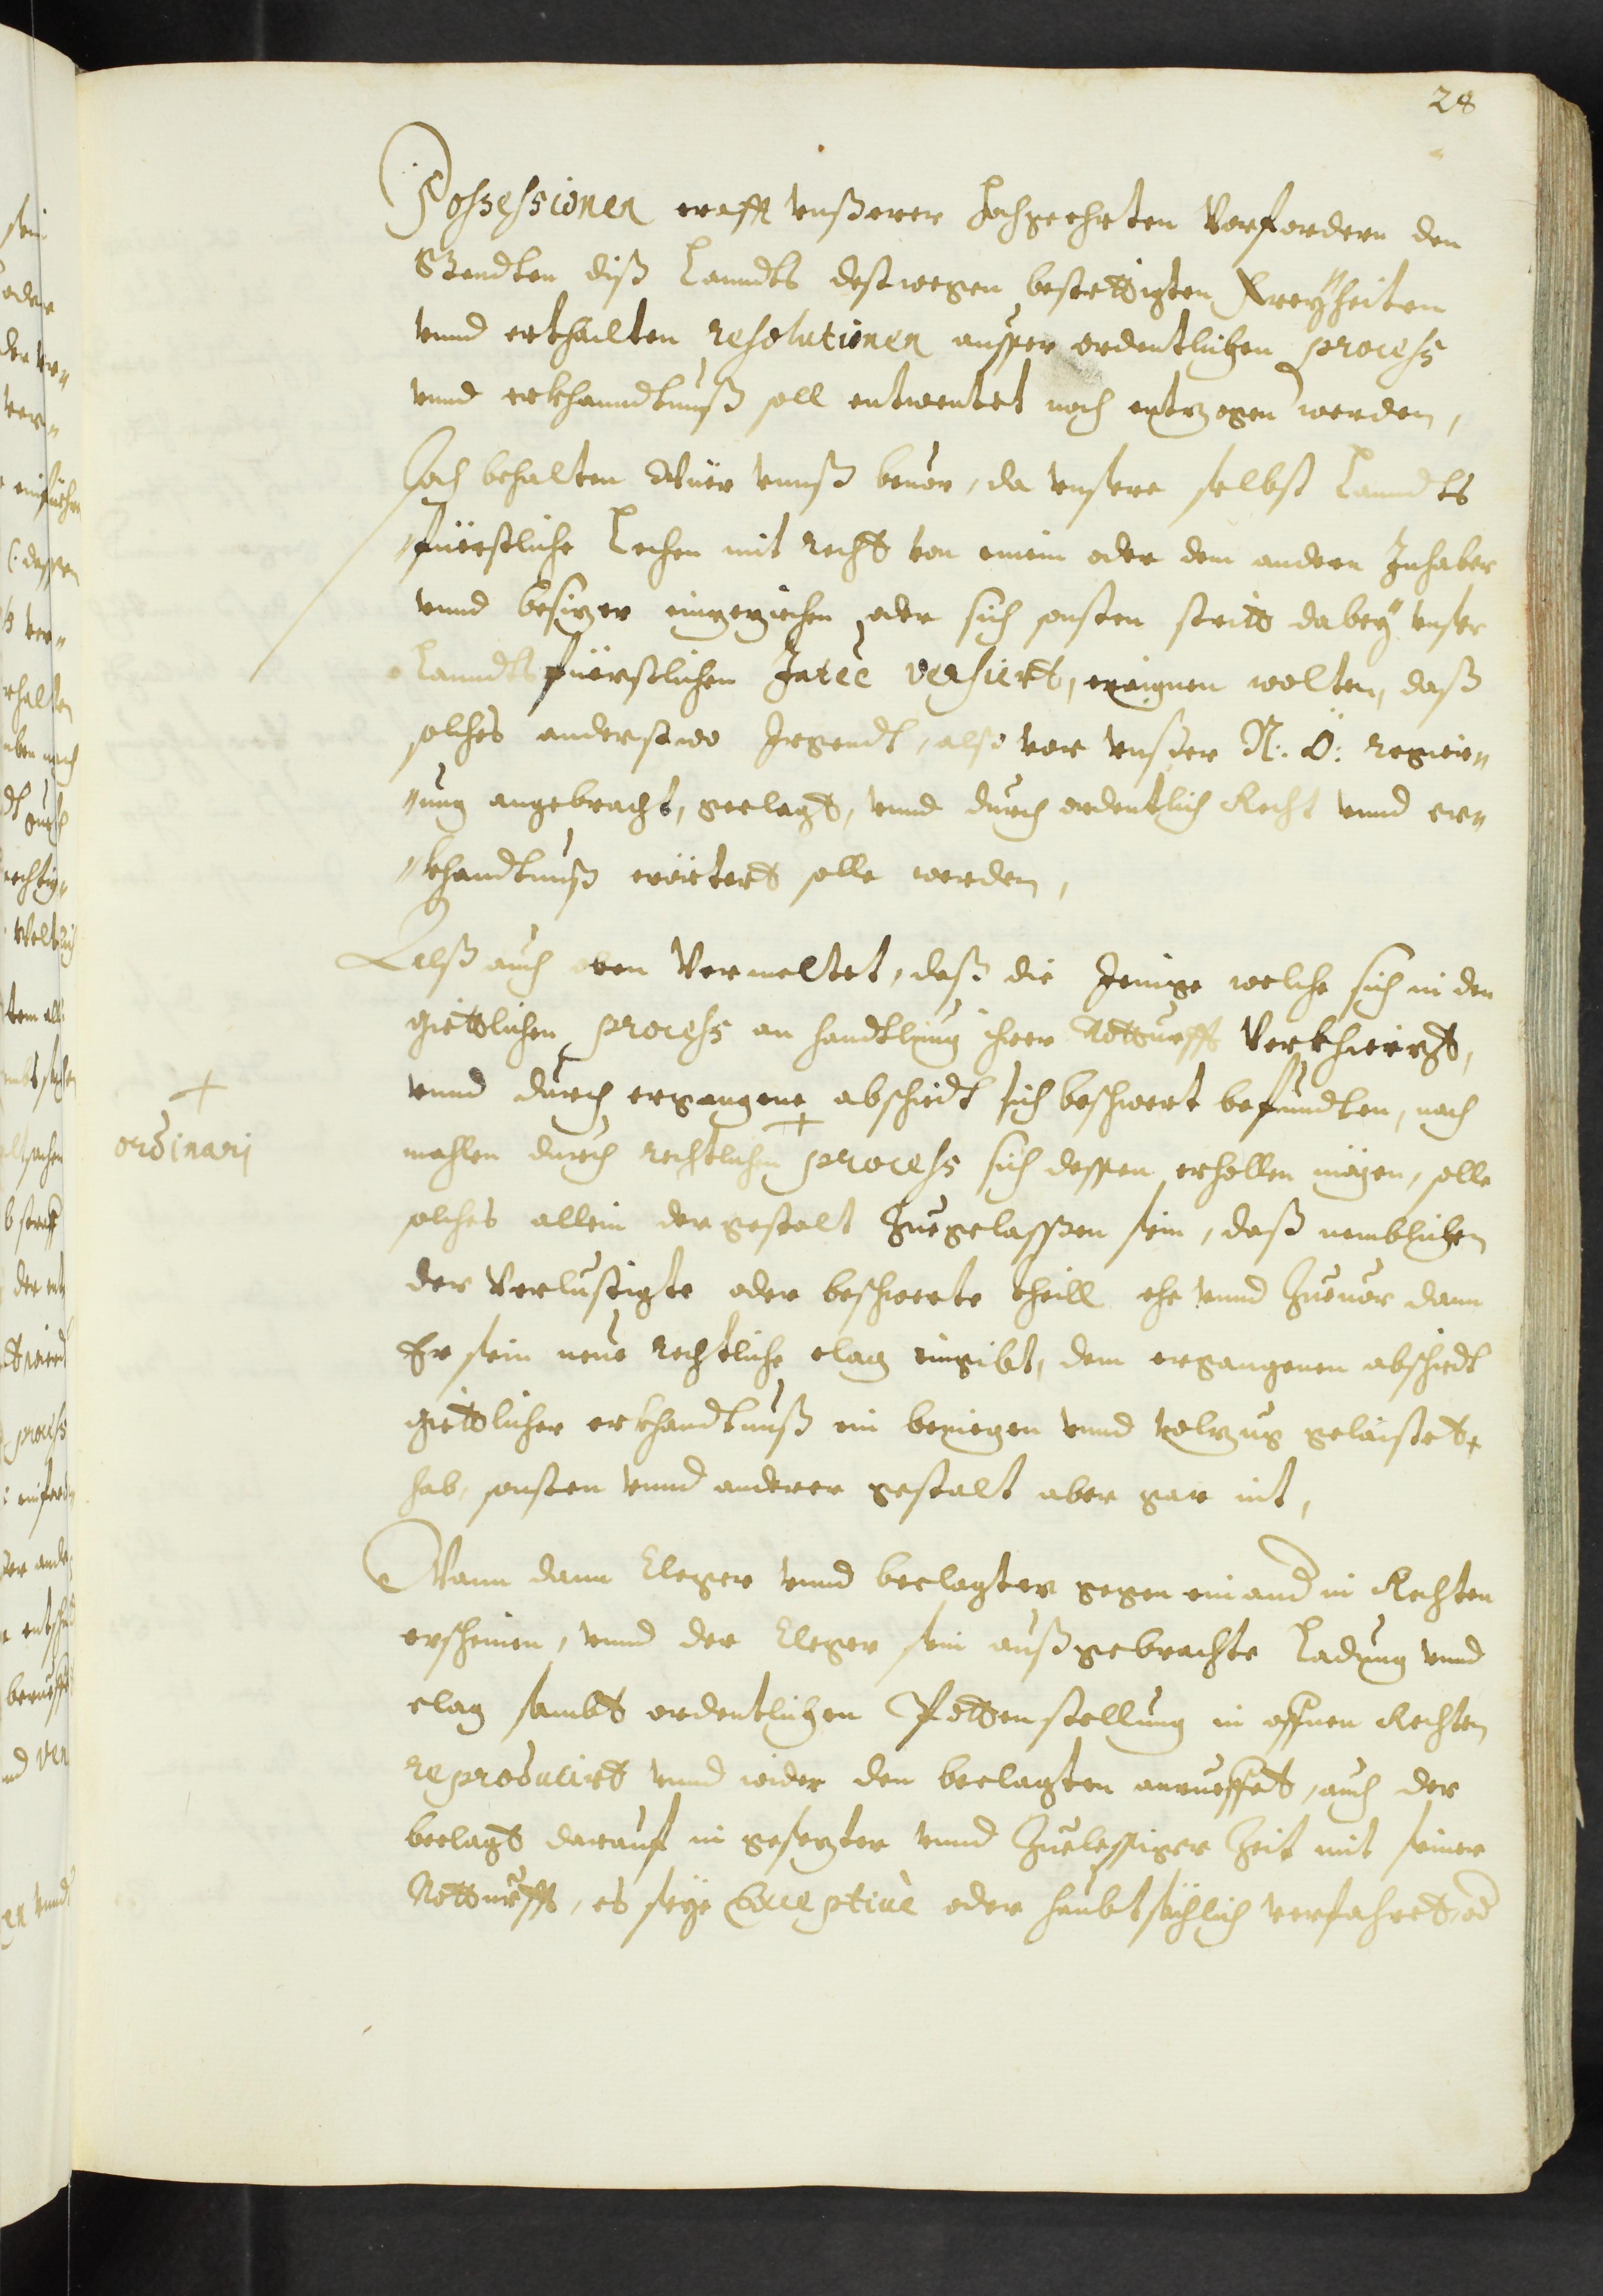 28
Possessionen crafft vnßerer hochgeehrten Vorfordern den
Stendten diß Lanndts destwegen bestettigten Freyheiten
vnnd erthailten resolutionen ausser ordentlichen process
vnnd erkhanndtnuß soll entwentet noch entzogen werden,
Joch behalten Wüer vnnß beuor, da vnsere selbst Lanndts
"füerstliche Lechen mit recht von einem oder dem andern Inhaber
vnnd besizer eingeziehen oder sich sonsten stritt dabey vnser
Lanndtsfüerstlichen Inte͠e versiert, eraignen wolten, daß
solches anderstwo Irgendt, alß vor vnßer N: Ö: regier"
"ung angebracht, geclagt, vnnd durch ordentlich Recht vnnd er"
"khandtnuß erörtert solle werden,
Alß auch oben Vermeltet, daß die Jenige welche sich in den
giettlichen process an handtlung ihrer Notturfft Verkhierzt,
vnnd durch ergangene abschiedt sich beschwert befundten, nach
mahlen durch rechtlichen + process sich dessen erhollen mögen, solle
+
ordinari
solches allein der gestalt Zuegelassen sein, daß nemblichen
der Verlustigte oder beschwerte theill ehe vnnd Zueuor dann
Er sein neue rechtliche clag eingibt, dem ergangenen abschiedt
giettlicher erkhandtnuß ein beniegen vnnd volzug gelaistet
hab, sonsten vnnd anderer gestalt aber gar nit,
Wann dann Cleger vnnd beclagter gegen einand in Rechten
erscheinen, vnnd der Cleger sein außgebrachte Ladung vnnd
clag sambt ordentlichen Pottenstellung in offnen Rechten
reproducirt vnnd wider den beclagten anrueffet, auch der
beclagt darauf in gesezter vnnd Zuelessiger Zeit mit seiner
Notturfft, es seye Exceptiuè oder haubtsächlich verfahret, od